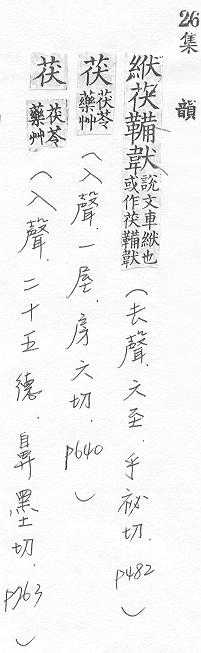 26 集韻
絥茯鞴 說文車絥也
或作茯鞴
(去聲.六至.平祕切.p482)
茯 茯苓
藥艸
(入聲.一屋.房六切.p640)
茯 茯苓
藥艸
(入聲.二十五德.鼻墨切.p763)